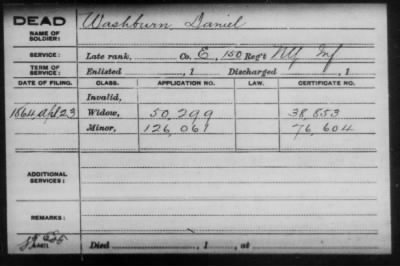 DEAD
NAME OF SOLDIER: Washburn, Daniel
SERVICE: Late rank, Co. E, 150 Reg't NY Inf
TERM OF SERVICE: Enlisted , 1 Discharged , 1
DATE OF FILING. CLASS. APPLICATION NO. LAW. CERTIFICATE NO.
Invalid,
1864 Apl 23 Widow, 50,299 38,853
Minor, 126,061 76,604
ADDITIONAL SERVICES:
REMARKS:
Died , 1 , at